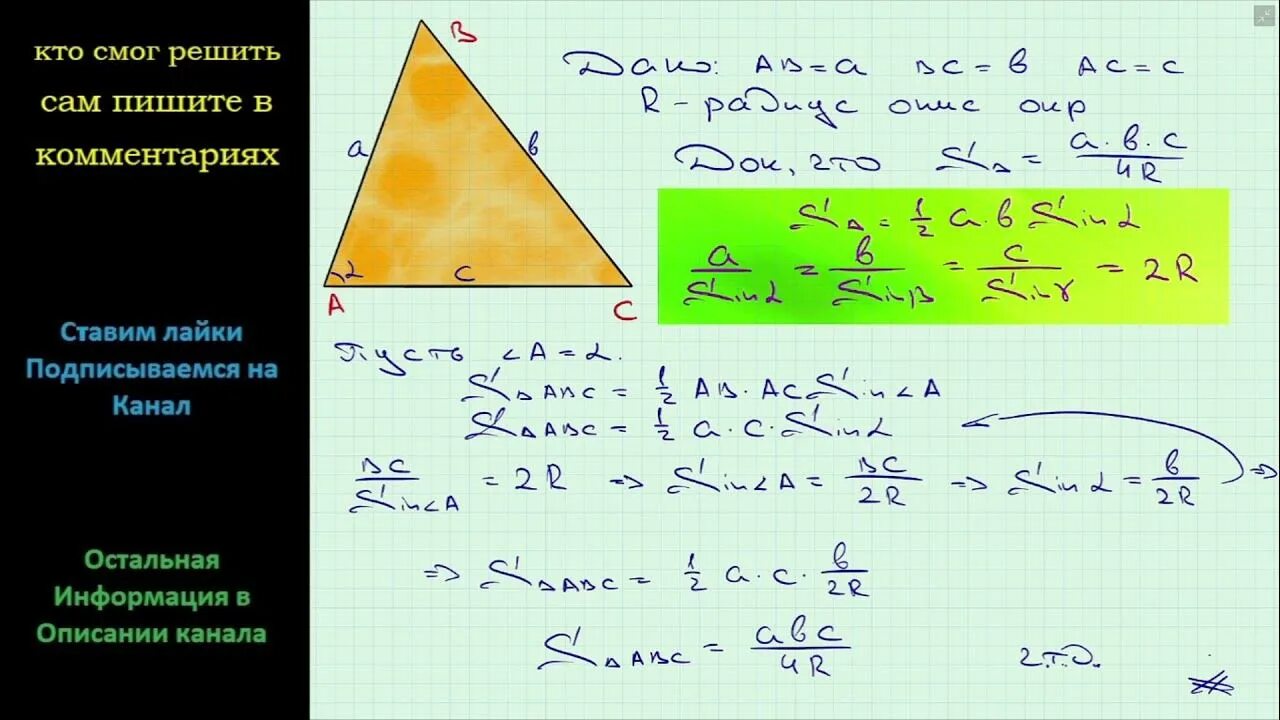 кто смог решить
сам пишите в
комментариях
Ставим лайки
Подписываемся на
Канал
Остальная
Информация в
Описании канала
B
a
в
α
c
A
C
Дано: AB = a BC = в AC = c
R - радиус опис окр
Док, что S△ = a·в·c/4R
S△ = 1/2 a·в Sin α
a/Sin α = в/Sin β = c/Sin γ = 2R
Пусть ∠A = α.
S△ABC = 1/2 AB·AC Sin∠A
S△ABC = 1/2 a·c·Sin α
BC/Sin∠A = 2R => Sin∠A = BC/2R => Sin α = в/2R =>
=> S△ABC = 1/2 a·c·в/2R
S△ABC = aвc/4R ч.т.д.